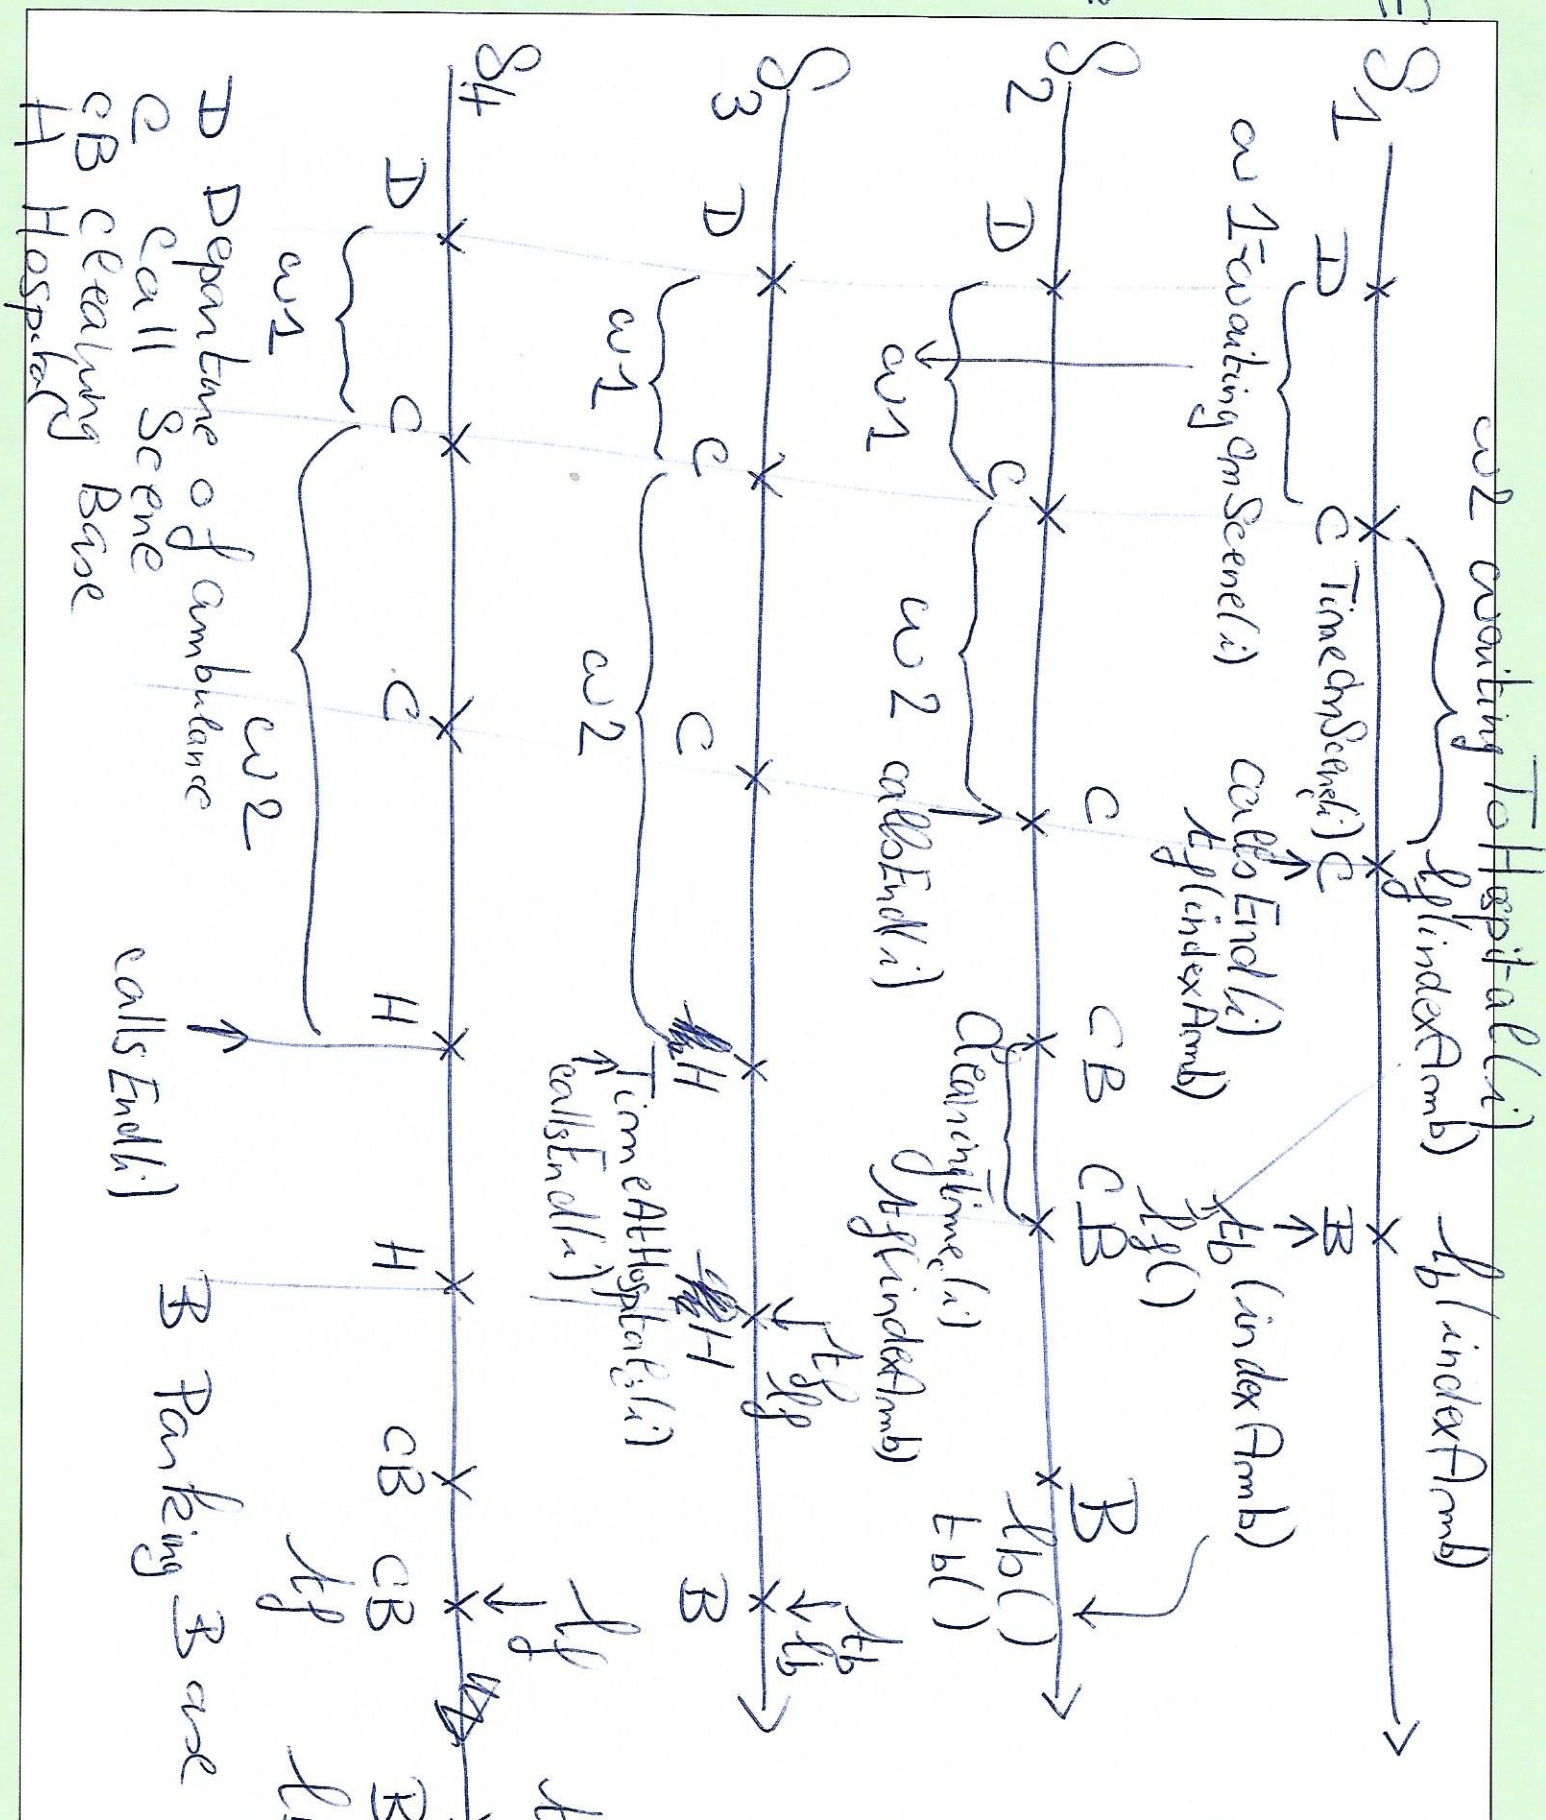 w2 waitingToHospital(i)
lf(indexAmb) lb(indexAmb)
S1 D C TimeOnScene(i) C B
w1=waitingOnScene(i) callsEnd(i) tb(indexAmb)
tf(indexAmb) lf()
S2 D C C CB CB B
w1 w2 callsEnd(i) Cleaningtime(i) lb()
tf(indexAmb) tb()
tf lf tb lb
S3 D C C H H B
w1 w2 TimeAtHospital(i)
callsEnd(i)
lf
S4 D C C H H CB CB B
w1 w2 callsEnd(i) tf
D Departure of ambulance
C Call Scene
CB Cleaning Base
H Hospital
B Parking Base